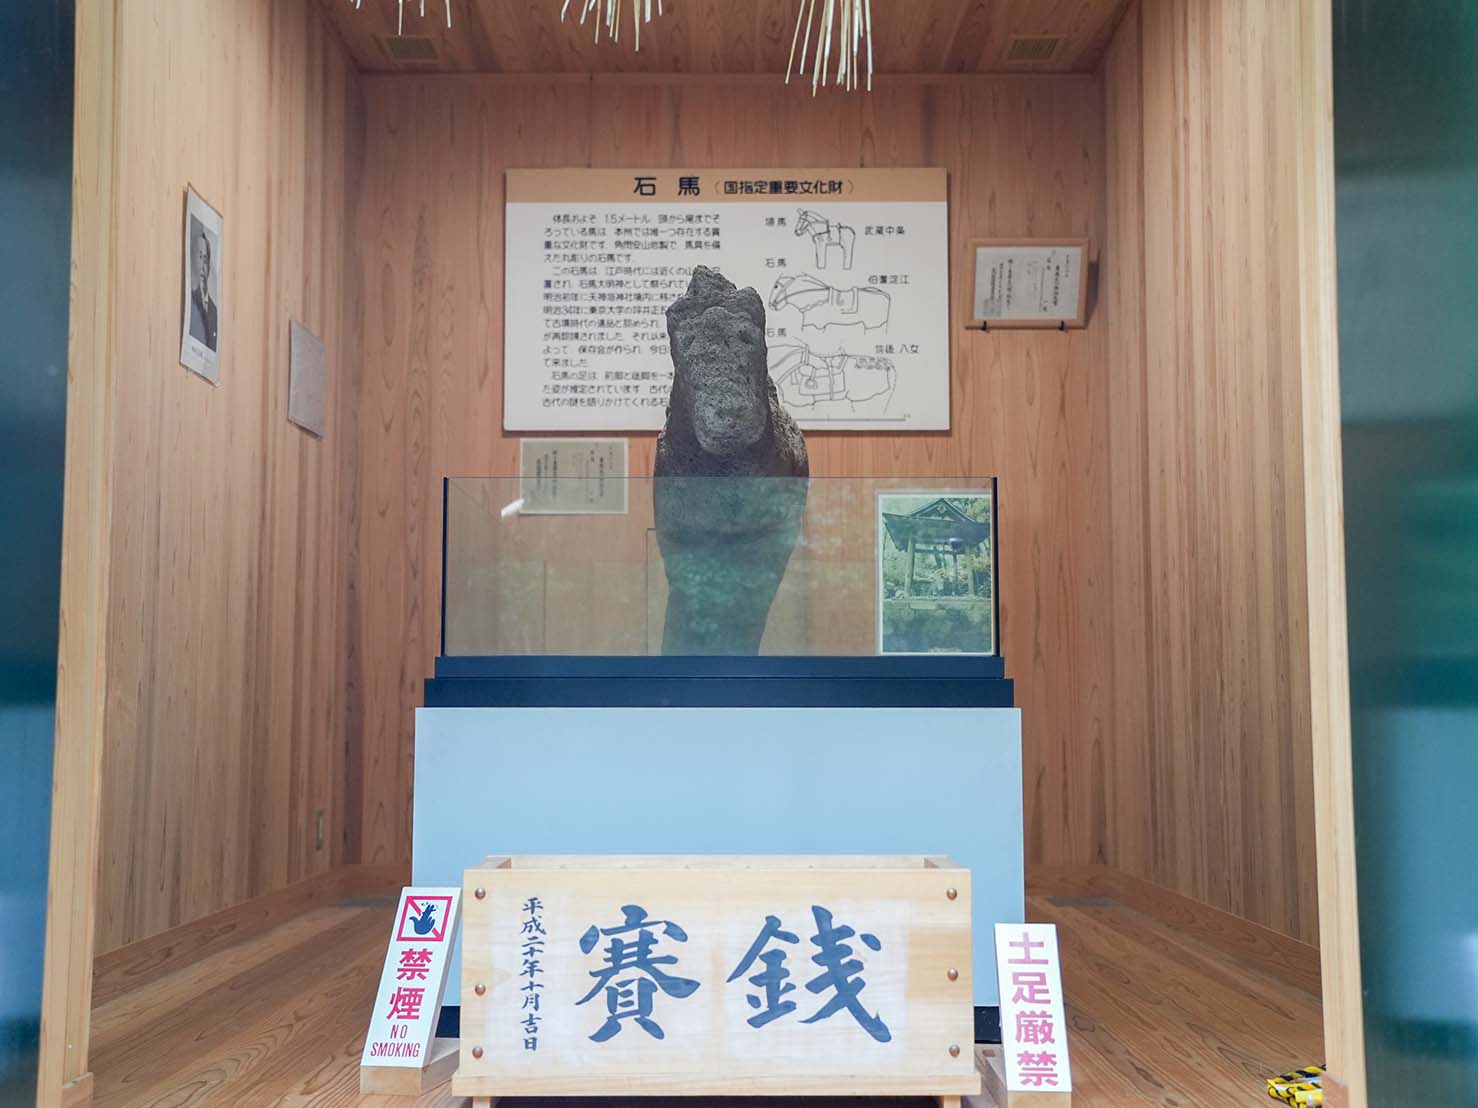 石馬（国指定重要文化財）
体長およそ 1.5メートル 頭から尾までそ
ろっている馬は 本州では唯一つ存在する貴
重な文化財です．角閃安山岩製で 馬具を備
えた丸彫りの石馬です．
この石馬は 江戸時代には近くの山
置され，石馬大明神として祭られて
明治前年に天神垣神社境内に移され
明治34年に東京大学の坪井正五
て古墳時代の遺品と認められ，
が再認識されました．それ以来
よって，保存会が作られ，今日
て来ました．
石馬の足は 前脚と後脚を一本
た姿が推定されています 古代の
古代の謎を語りかけてくれる石
埴馬
武蔵中条
石馬
伯耆淀江
石馬
筑後 八女
賽銭
平成二十年十月吉日
禁煙
NO
SMOKING
土足厳禁